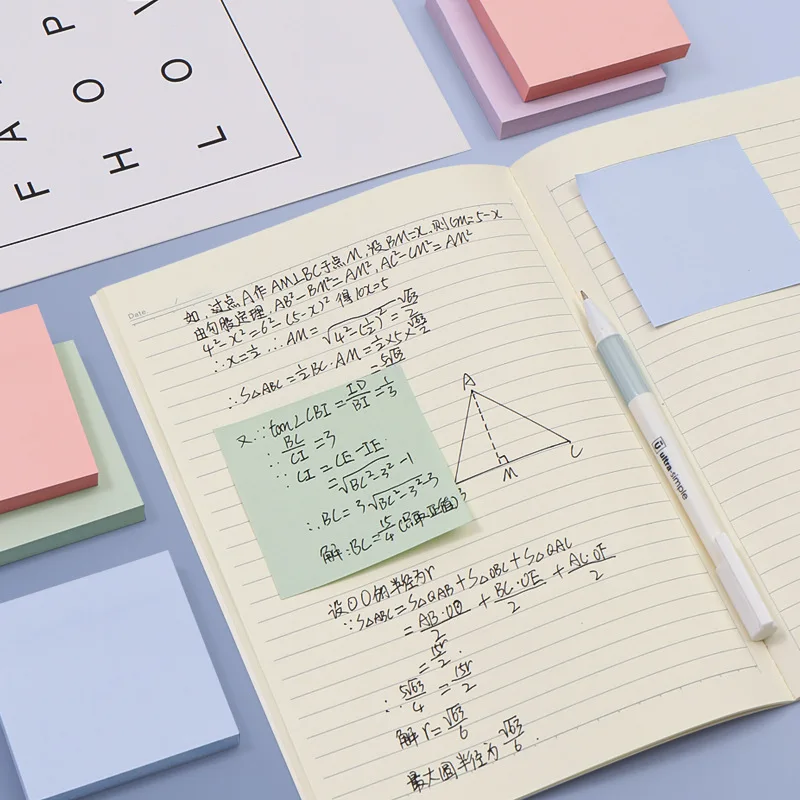 P V
A O O
F H L
Date
如, 过点A作AM⊥BC于点M, 设BM=x, 则CM=5-x
由勾股定理, AB²-BM²=AM², AC²-CM²=AM²
4²-x²=6²-(5-x)² 得10x=5
∴x=1/2 ∴AM=√(4²-(1/2)²)=√63/2
∴S△ABC=1/2BC·AM=1/2×5×√63/2
=5√63
又∵tan∠CBI=ID/BI=1/3
∴BC/CI=3
∴CI=CE-IE
=√(BC²-3²)-1
∴BC=3√(BC²-3²)-3
解:BC=15/4(只取正值)
A
M
C
设⊙O的半径为r
∵S△ABC=S△OAB+S△OBC+S△OAC
=AB·OD/2+BC·OE/2+AC·OF/2
=15r/2
∴5√63/4=15r/2
解r=√63/6
最大圆半径为√63/6.
ultra·simple